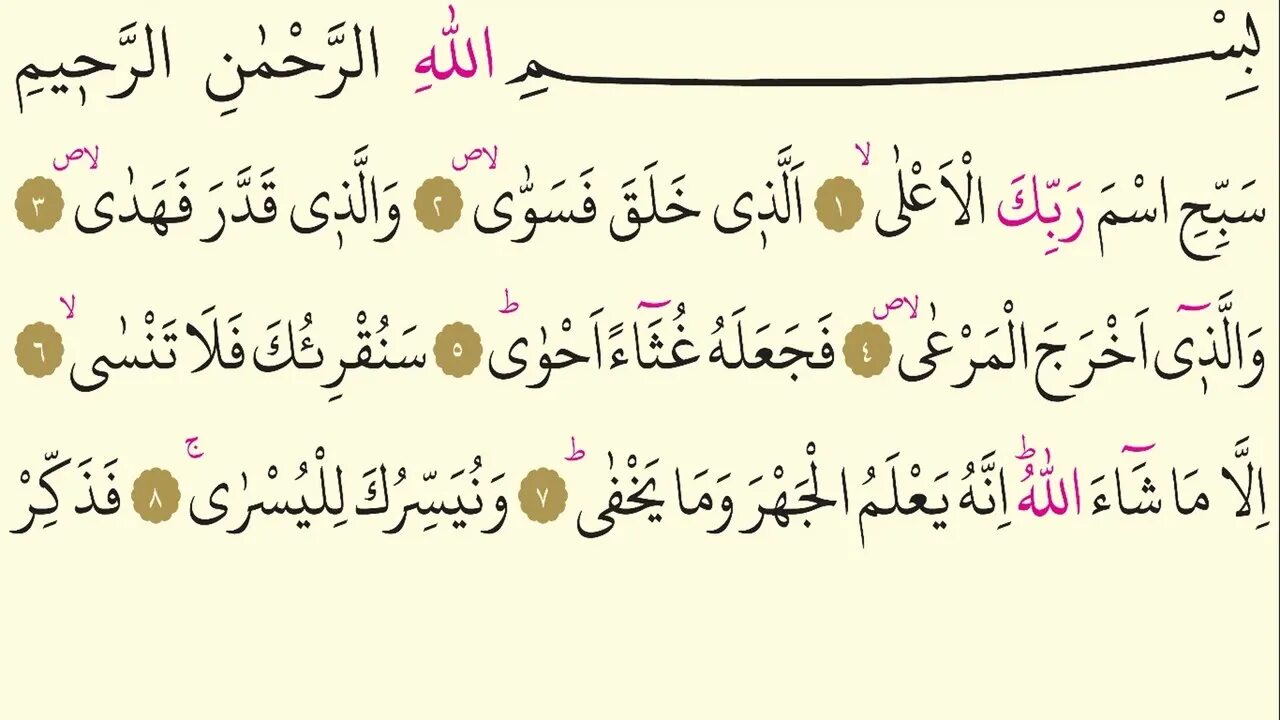 بِسْمِ اللّٰهِ الرَّحْمٰنِ الرَّح۪يمِ
سَبِّحِ اسْمَ رَبِّكَ الْاَعْلٰىۙ ١ اَلَّذ۪ي خَلَقَ فَسَوّٰىۙۖ ٢ وَالَّذ۪ي قَدَّرَ فَهَدٰىۙۖ ٣
وَالَّذ۪ٓي اَخْرَجَ الْمَرْعٰىۙۖ ٤ فَجَعَلَهُ غُثَٓاءً اَحْوٰىۜ ٥ سَنُقْرِئُكَ فَلَا تَنْسٰىۙ ٦
اِلَّا مَا شَٓاءَ اللّٰهُۜ اِنَّهُ يَعْلَمُ الْجَهْرَ وَمَا يَخْفٰىۜ ٧ وَنُيَسِّرُكَ لِلْيُسْرٰىۚ ٨ فَذَكِّرْ